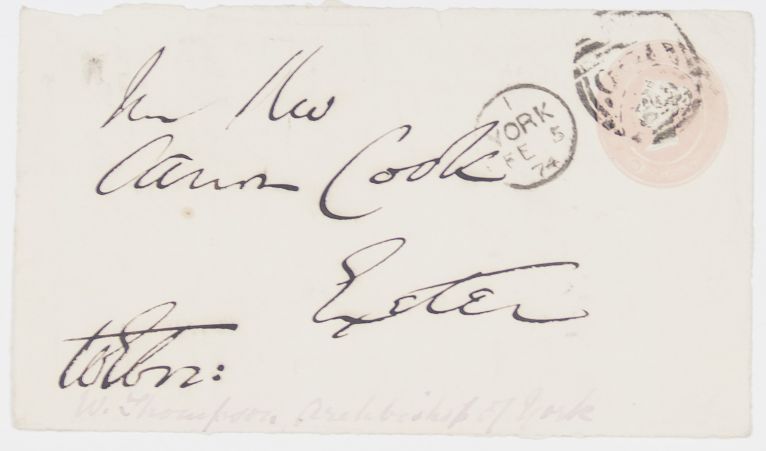 The Rev
Canon Cook
Exeter
W Ebor:
W. Thompson, Archbishop of York
1
YORK
FE 5
74